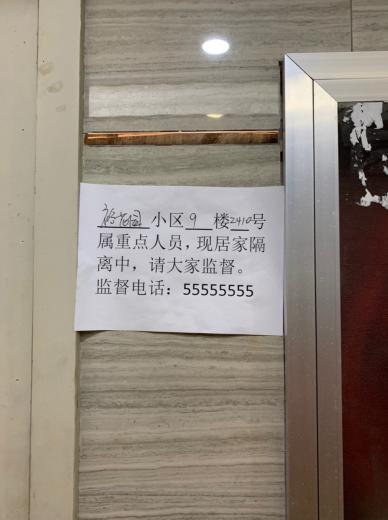 花园小区9楼2410号
属重点人员，现居家隔
离中，请大家监督。
监督电话：55555555